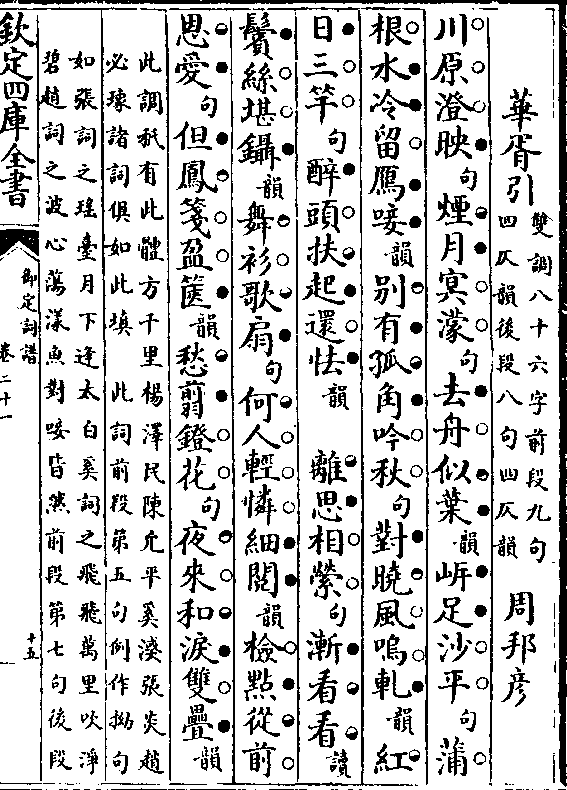 華胥引
雙調八十六字前段九句
四仄韻後段八句四仄韻
周邦彦
川原澄映句煙月冥濛句去舟似葉韻岸足沙平句蒲
根水冷留鴈唼韻别有孤角吟秋句對曉風嗚軋韻紅
日三竿句醉頭扶起還怯韻 離思相縈句漸看看讀
鬢絲堪鑷韻舞衫歌扇句何人輕憐細閱韻檢點從前
恩愛句但鳳箋盈篋韻愁翦鐙花句夜來和淚雙疊韻
此調祇有此體方千里楊澤民陳允平奚㴾張炎趙
必𤩪諸詞俱如此填 此詞前段第五句例作拗句
如張詞之瑶臺月下逢太白奚詞之飛飛萬里吹淨
碧趙詞之波心蕩漾魚對唼皆然前段第七句後段
欽定四庫全書
御定詞譜
卷二十一
十五